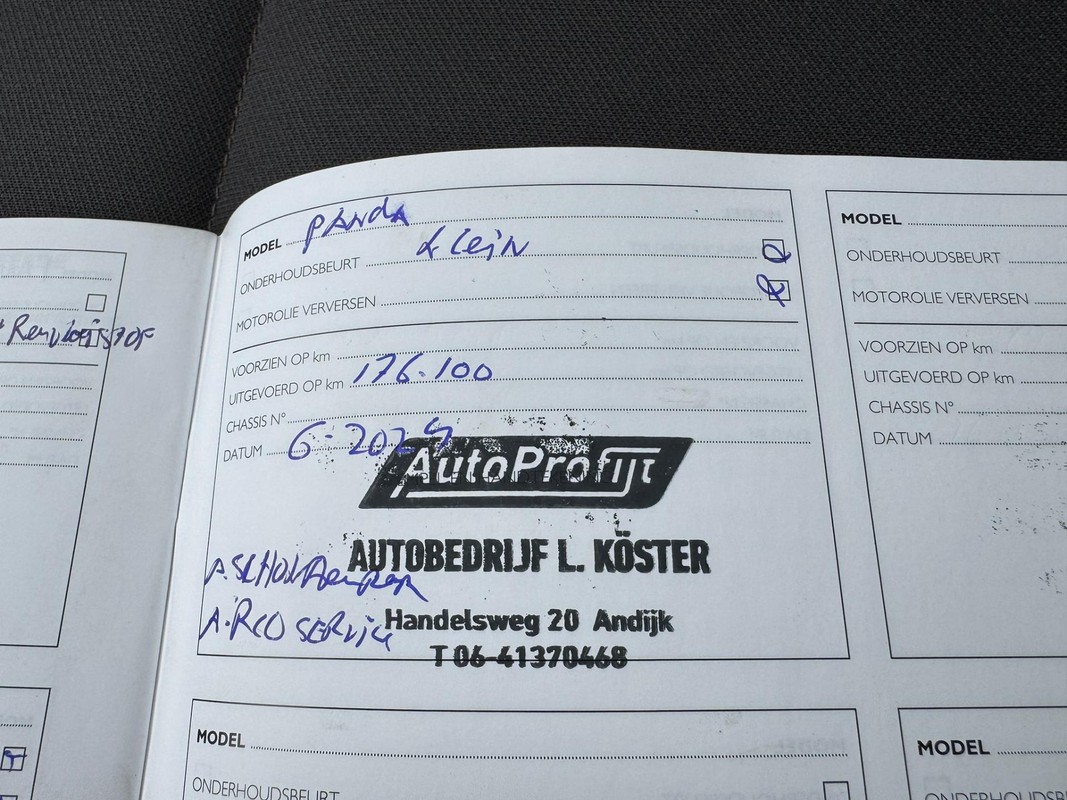 Remvloeistof
MODEL PANdA
ONDERHOUDSBEURT kleiN
MOTOROLIE VERVERSEN
VOORZIEN OP km
UITGEVOERD OP km 176.100
CHASSIS N°
DATUM 6-2024
AutoProfijt
AUTOBEDRIJF L. KÖSTER
A.SCHOKdempER
AiRCO SERvice
Handelsweg 20 Andijk
T 06-41370468
MODEL
ONDERHOUDSBEURT
MOTOROLIE VERVERSEN
VOORZIEN OP km
UITGEVOERD OP km
CHASSIS N°
DATUM
MODEL
ONDERHOUDSBEURT
MODEL